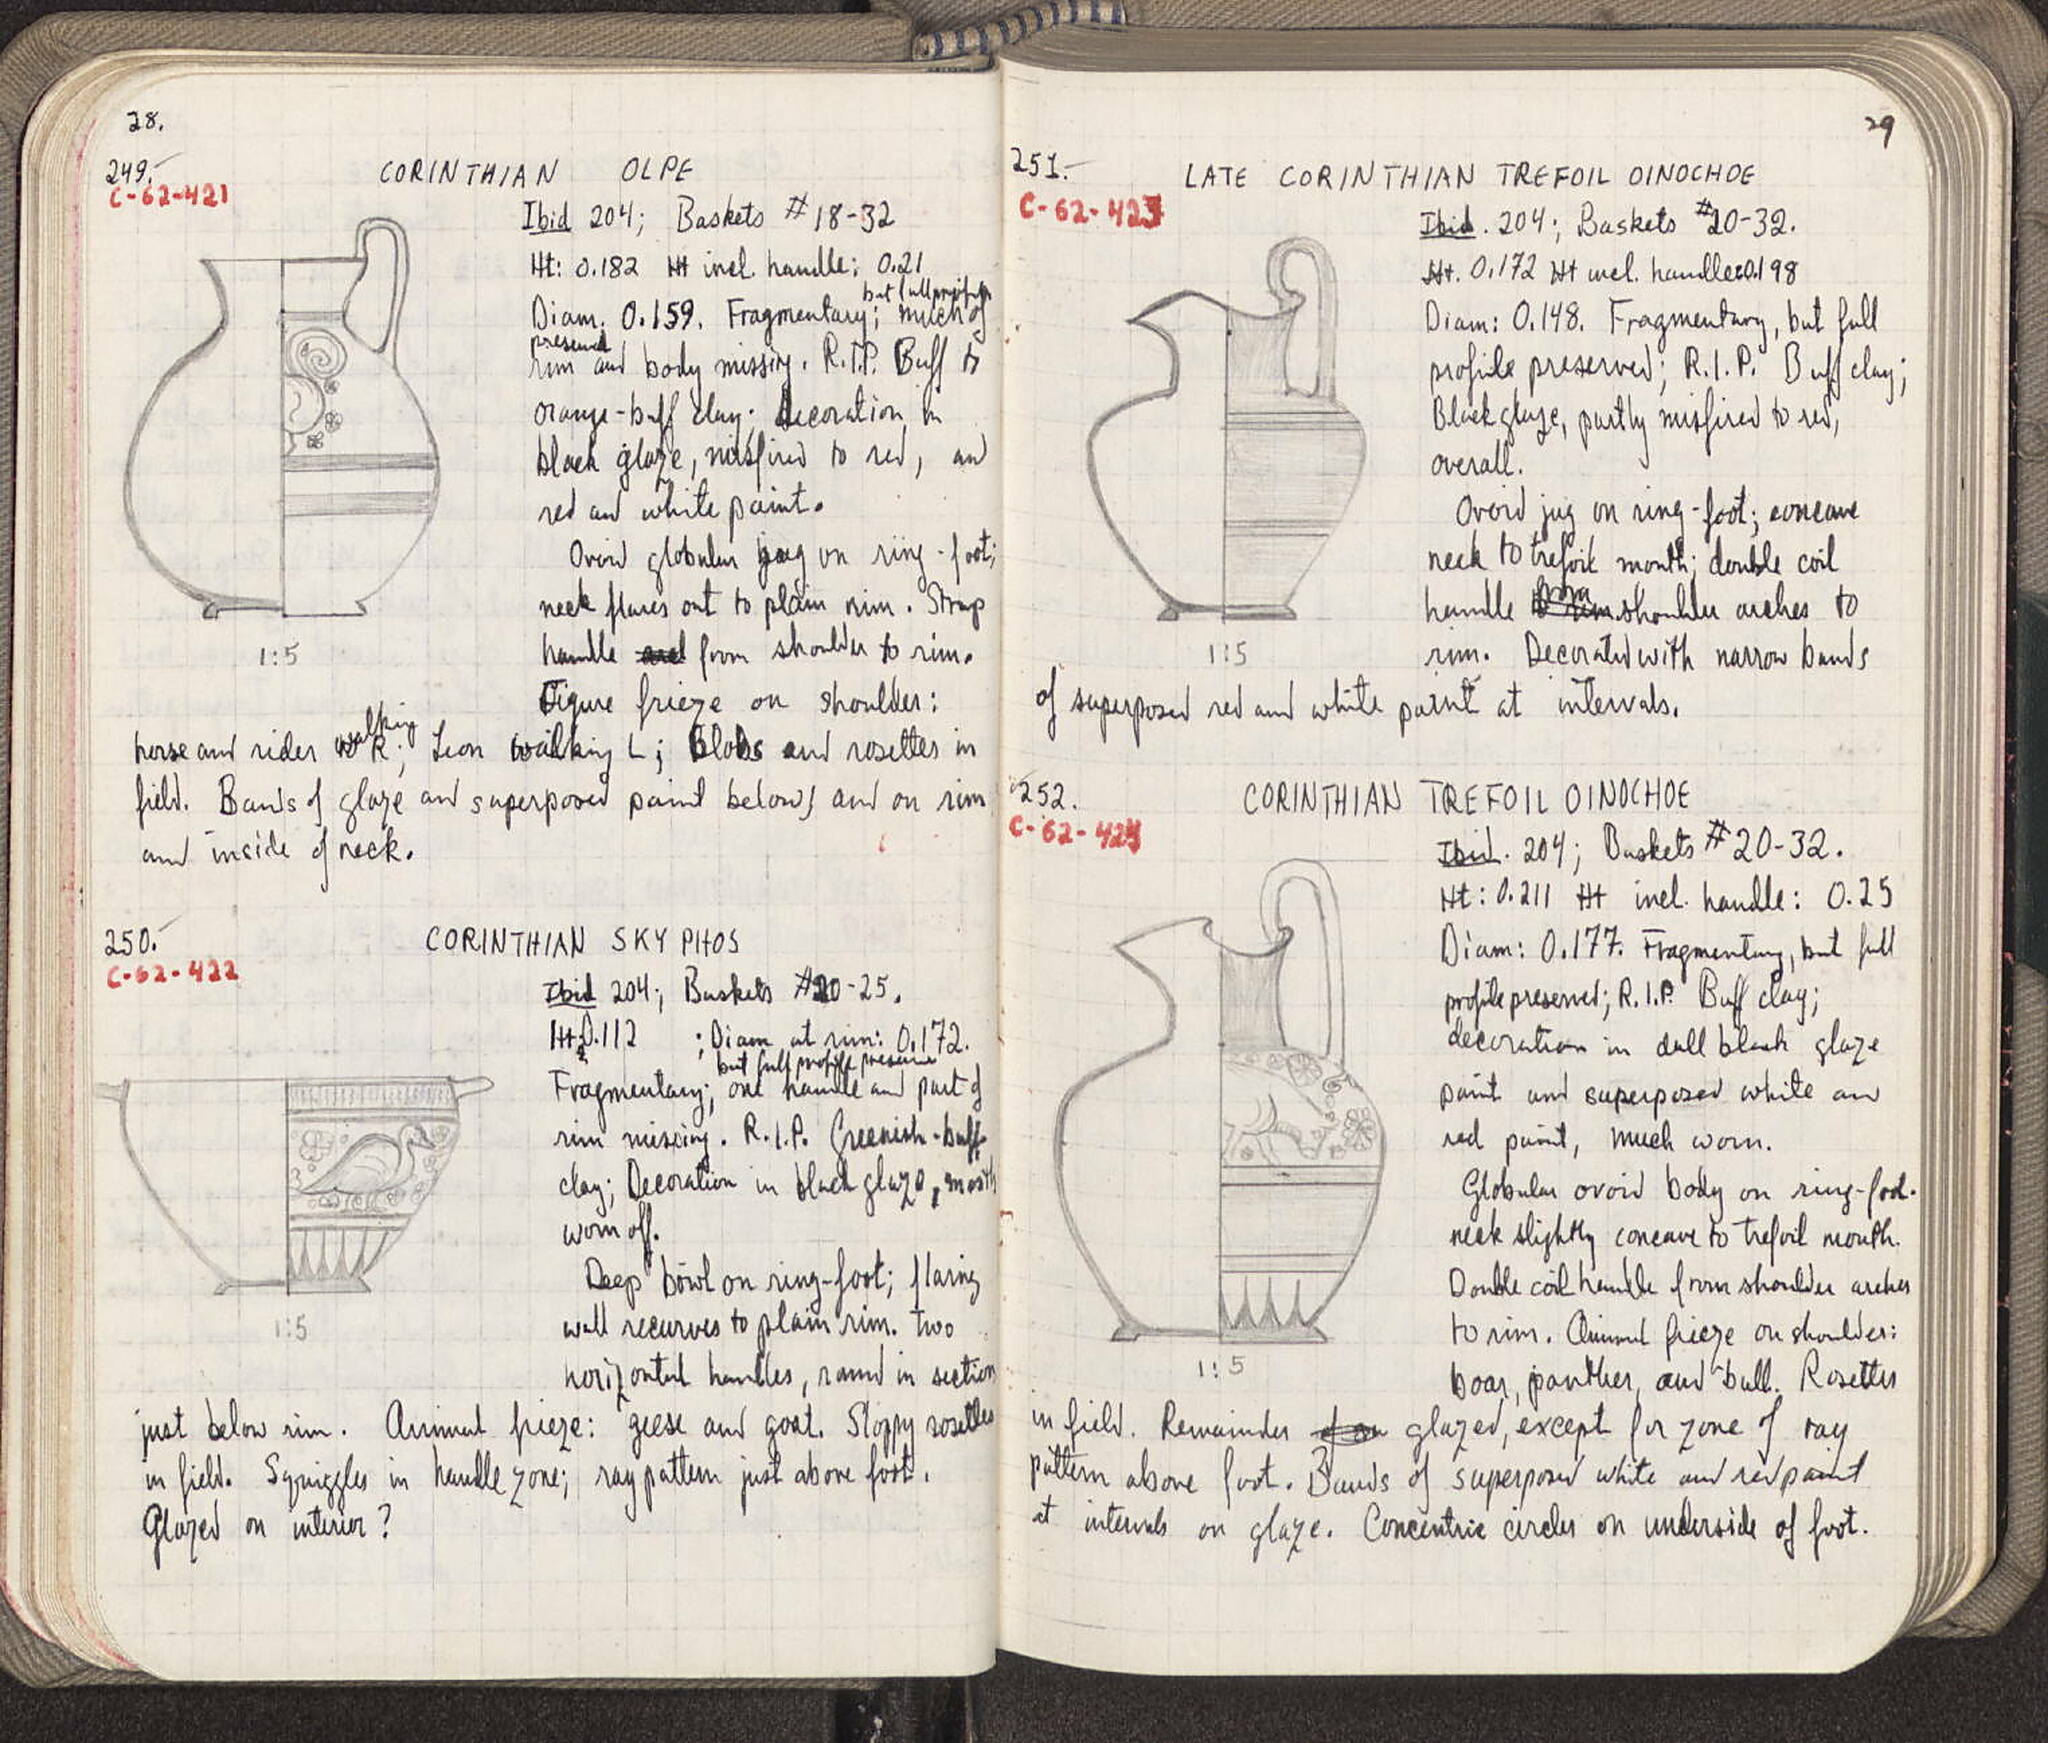 28.
249.
C-62-421
CORINTHIAN OLPE
Ibid 204; Baskets # 18-32
Ht: 0.182 Ht incl. handle: 0.21
but full profile
Diam. 0.159. Fragmentary; much of
preserved
rim and body missing. R.I.P. Buff to
orange-buff clay; Decoration in
black glaze, misfired to red, and
red and white paint.
Ovoid globular jug on ring-foot;
neck flares out to plain rim. Strap
handle from shoulder to rim.
Figure frieze on shoulder:
walking
horse and rider R; Lion walking L; Blobs and rosettes in
field. Bands of glaze and superposed paint below, and on rim
and inside of neck.
1:5
250.
C-62-422
CORINTHIAN SKYPHOS
Ibid 204; Baskets #20-25.
Ht: 0.112 ; Diam at rim: 0.172.
but full profile preserved
Fragmentary; one handle and part of
rim missing. R.I.P. Greenish-buff
clay; Decoration in black glaze, mostly
worn off.
Deep bowl on ring-foot; flaring
wall recurves to plain rim. Two
horizontal handles, round in section
just below rim. Animal frieze: geese and goat. Sloppy rosettes
in field. Squiggles in handle zone; ray pattern just above foot.
Glazed on interior?
1:5
29
251.
C-62-423
LATE CORINTHIAN TREFOIL OINOCHOE
Ibid. 204; Baskets #20-32.
Ht. 0.172 Ht incl. handle: 0.198
Diam: 0.148. Fragmentary, but full
profile preserved; R.I.P. Buff clay;
Black glaze, partly misfired to red,
overall.
Ovoid jug on ring-foot; concave
neck to trefoil mouth; double coil
from
handle shoulder arches to
rim. Decorated with narrow bands
of superposed red and white paint at intervals.
1:5
252.
C-62-424
CORINTHIAN TREFOIL OINOCHOE
Ibid. 204; Baskets #20-32.
Ht: 0.211 Ht incl. handle: 0.25
Diam: 0.177. Fragmentary, but full
profile preserved; R.I.P. Buff clay;
decoration in dull black glaze
paint and superposed white and
red paint, much worn.
Globular ovoid body on ring-foot.
neck slightly concave to trefoil mouth.
Double coil handle from shoulder arches
to rim. Animal frieze on shoulder:
boar, panther, and bull. Rosettes
in field. Remainder glazed, except for zone of ray
pattern above foot. Bands of superposed white and red paint
at intervals on glaze. Concentric circles on underside of foot.
1:5